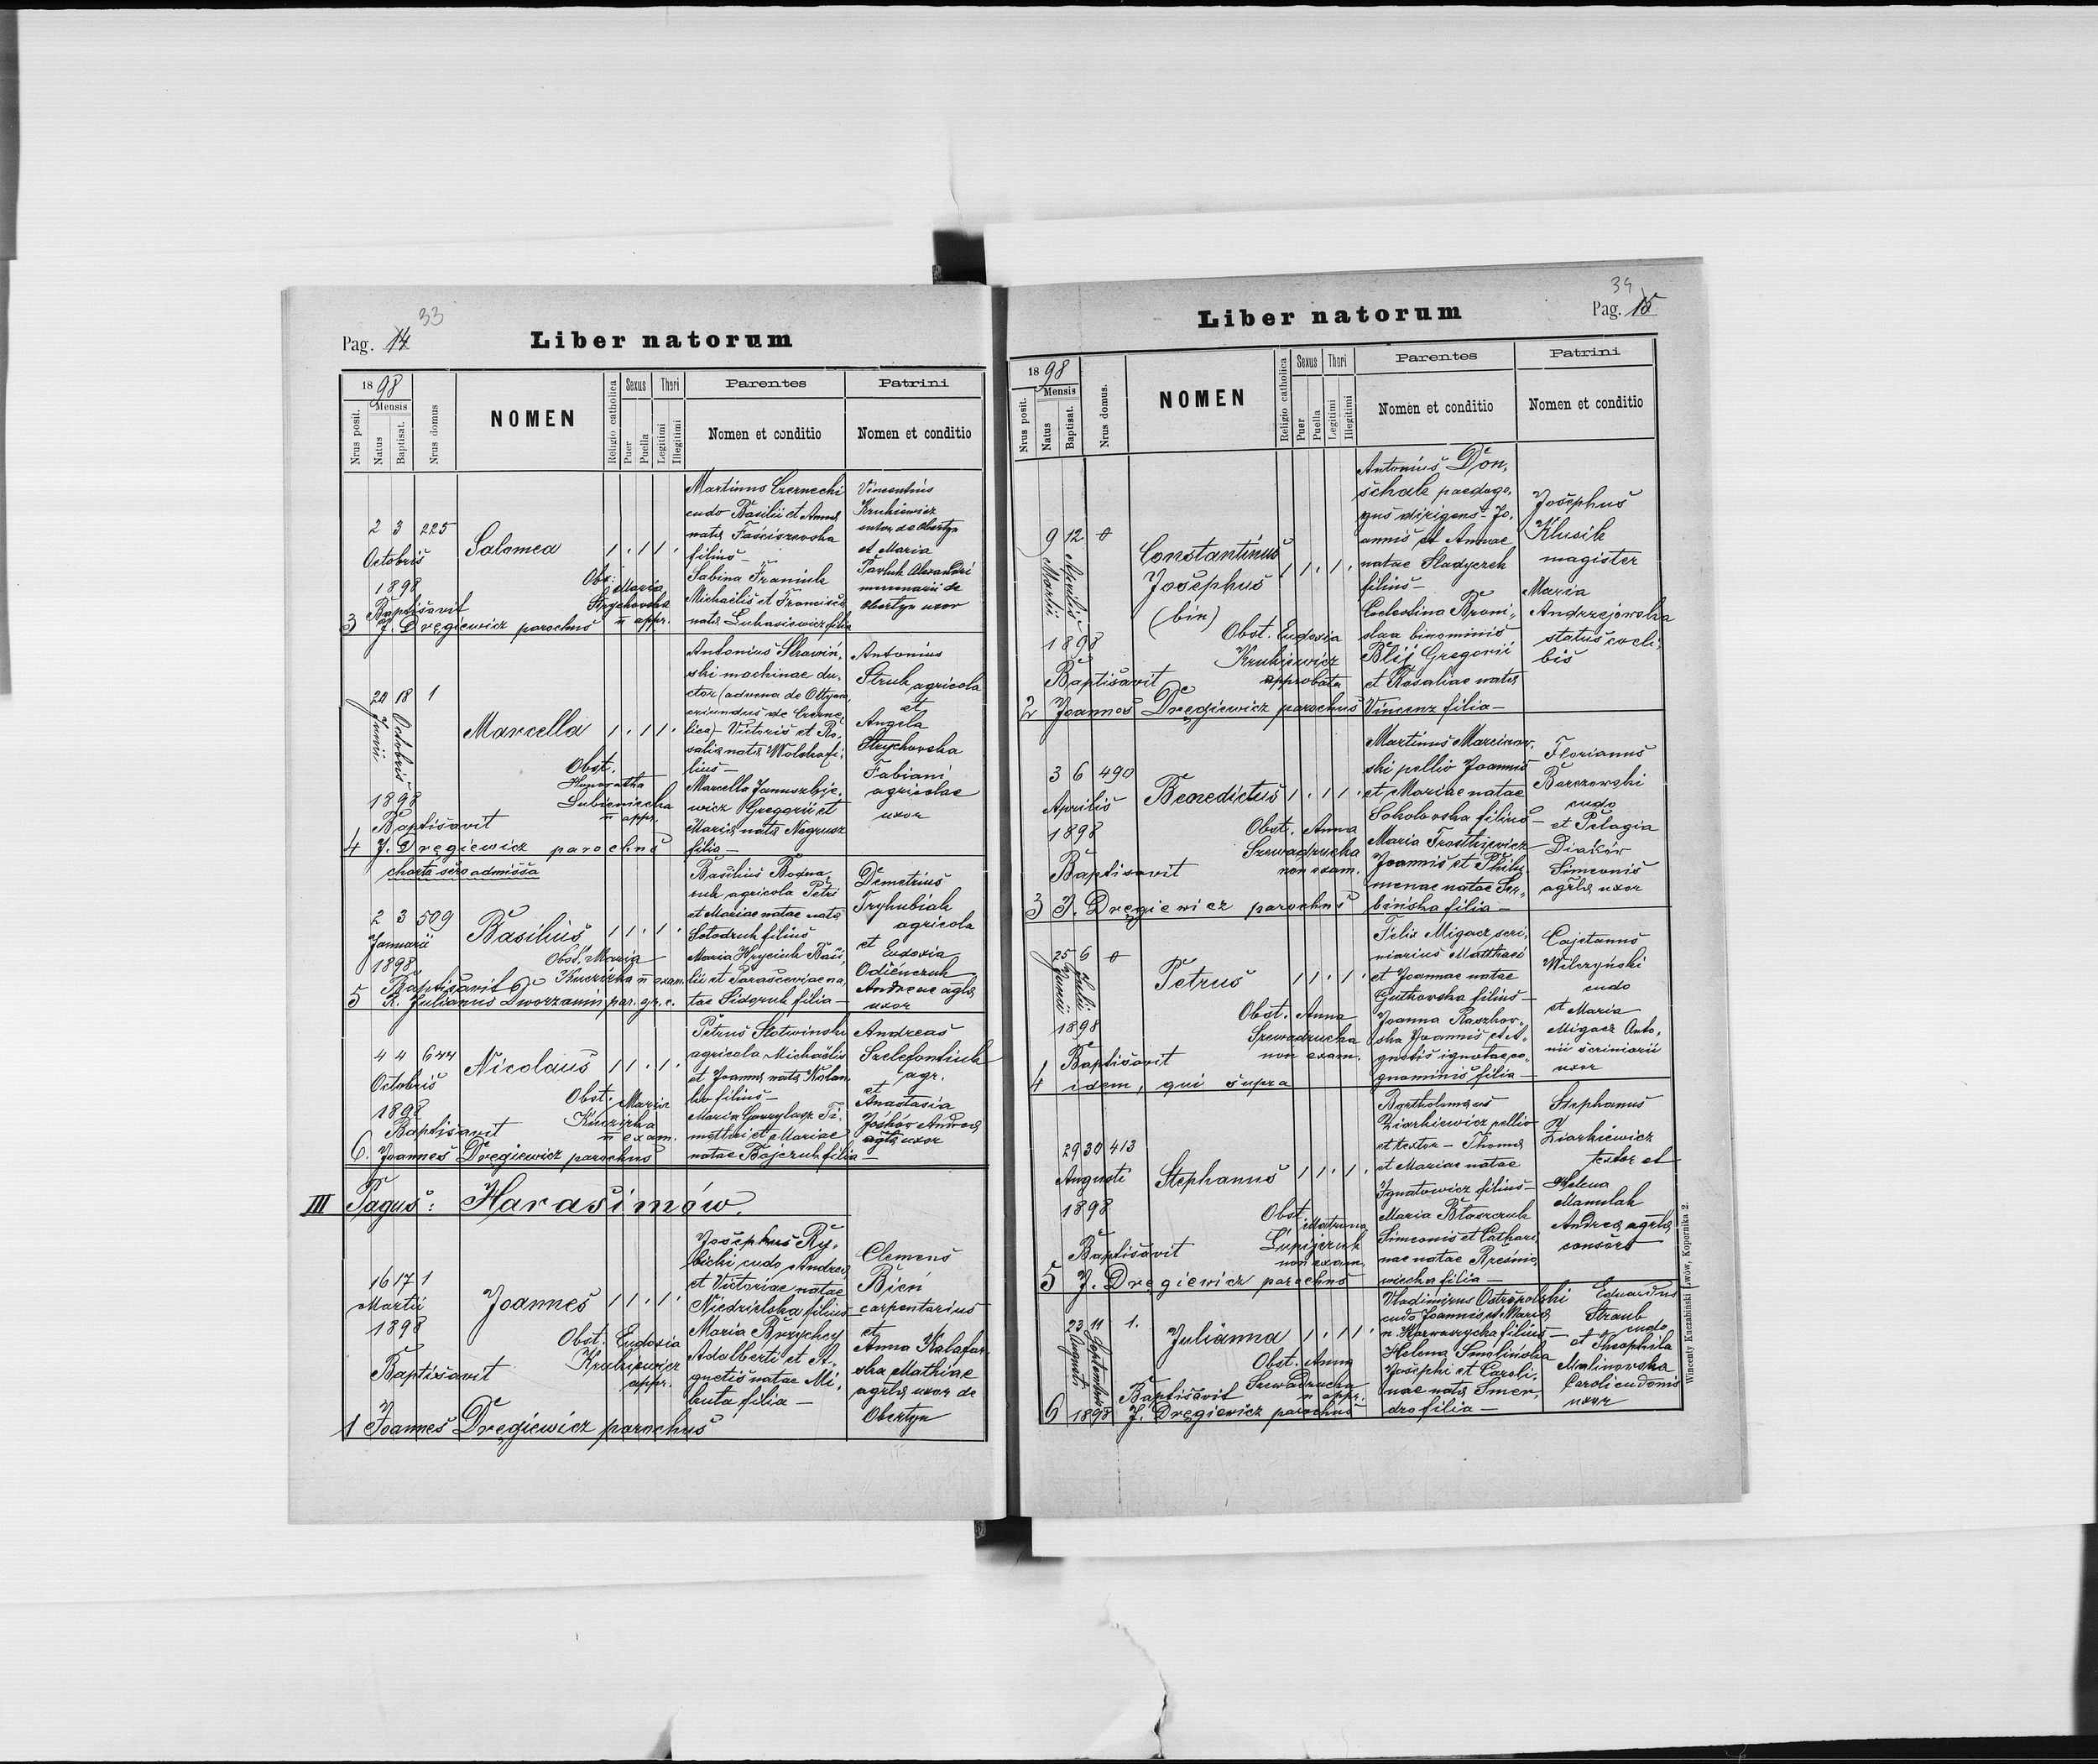 33
Pag. 14
Liber natorum
1898
Nrus posit.
Mensis
Natus
Baptisat.
Nrus domus
NOMEN
Religio catholica
Sexus
Puer
Puella
Thori
Legitimi
Illegitimi
Parentes
Nomen et conditio
Patrini
Nomen et conditio
2 3 225
Octobris
1898
Salomea
Obs: Maria
Strychovska
n appr.
Baptisavit
3 J. Dręgiewicz parochus
Martinus Czernechi
cudo Basilii et Annæ
natæ
filius –
Sabina Franiuk
Michaelis et Franciscæ
natæ Lukasiewicz filia
Vincentius
Krukiewicz
sutor de Obertyn
et Maria
Pavluk Alexandri
de
Obertyn uxor
20 18 1
Junii Octobris
1898
Marcella
Obst.
Honoratha
Lubieniecka
n appr.
Baptisavit
4 J. Dręgiewicz parochus
Antonius Strawiń-
ski machinae du-
ctor (advena de Ottynia,
oriundus de Czerne-
lica) – Victoris et Ro-
saliæ natæ Wolska fi-
lius –
Marcella Januszkije-
wicz Gregorii et
Mariæ natæ Negrusz
filia –
Antonius
Struk agricola
et
Angela
Strychovska
Fabiani
agricolae
uxor
charta sero admissa
2 3 509
Januarii
1898
Basilius
Obst. Maria
Kuczirka n exam.
Baptisavit
5 R. Julianus Dworzanin par. gr. c.
Basilius Bodna-
ruk agricola Petri
et Mariae natae natæ
Sotodruk filius
Maria Hryciuk Basi-
lii et Parasceviae na-
tae Sidoruk filia –
Demetrius
Tryhubiak
agricola
et
Eudoxia
Odienczuk
Andreae agrlæ
uxor
4 4 644
Octobris
1898
Nicolaus
Obst. Maria
Kuczirka
n exam.
Baptisavit
6. Joannes Dręgiewicz parochus
Petrus Slotwinski
agricola Michaëlis
et Joannæ natæ Kolan-
ko filius –
Maria Gavrylasz Ti-
mothei et Mariae
natae Bojczuk filia –
Andreas
Szelefontiuk
agr.
et
Anastasia
Joskow Andreæ
agrlæ uxor
III Pagus: Harasimów.
16 17 1
Martii
1898
Joannes
Obst. Eudoxia
Krukiewicz
appr.
Baptisavit
1 Joannes Dręgiewicz parochus
Josephus Ry-
bicki cudo Andreæ
et Victoriae natae
Niedzielska filius –
Maria Brzychcy
Adalberti et A-
gnetis natae Mi-
kuta filia –
Clemens
Bień
carpentarius
et
Anna Kalafar-
ska Mathiae
agrlæ uxor de
Obertyn
34
Pag. 15
Liber natorum
1898
Nrus posit.
Mensis
Natus
Baptisat.
Nrus domus.
NOMEN
Religio catholica
Sexus
Puer
Puella
Thori
Legitimi
Illegitimi
Parentes
Nomen et conditio
Patrini
Nomen et conditio
9 12 0
Martii Aprilis
1898
Constantinus
Josephus
(bin)
Obst. Eudoxia
Krukiewicz
approbata
Baptisavit
2 Joannes Dręgiewicz parochus
Antonius Don-
schak paedago-
gus dirigens – Jo-
annis et Annae
natae Sladyczek
filius –
Coelestina Broni-
slaa binominis
Blij Gregorii
et Rosaliae natæ
Vincenz filia –
Josephus
Klusik
magister
Maria
Andrzejowska
status coeli-
bis
3 6 490
Aprilis
1898
Benedictus
Obst. Anna
Szewadzucka
non exam.
Baptisavit
3 J. Dręgiewicz parochus
Martinus Marcinow-
ski pellio Joannis
et Mariae natae
Sokolovska filius –
Maria
Joannis et Philu-
menae natae Ser-
binska filia –
Florianus
Barczowski
cudo
et Pelagia
Diaków
Simeonis
agrlæ uxor
25 6 0
Junii Julii
1898
Petrus
Obst. Anna
Szewadzucka
non exam.
Baptisavit
4 idem, qui supra
Felix Migacz scri-
niarius Matthaei
et Joannae natae
Gutkovska filius –
Joanna Raszkov-
ska Joannis et A-
gnetis ignotae co-
gnominis filia –
Cajetanus
Wilczyński
cudo
et Maria
Migacz Anto-
nii scriniarii
uxor
29 30 413
Augusti
1898
Stephanus
Obst. Matrona
Lupijczuk
non exam.
Baptisavit
5 J. Dręgiewicz parochus
Bartholomaeus
Ziarkiewicz pellio
et textor – Thomæ
et Mariae natae
Ignatowicz filius –
Maria Błaszczuk
Simeonis et Cathari-
nae natae
wiecka filia –
Stephanus
Ziarkiewicz
textor et
Helena
Manulak
Andreæ agrlæ
consors
23 11 1.
Augusti Septembris
1898
Julianna
Obst. Anna
Szewadzucka
n appr.
Baptisavit
6 J. Dręgiewicz parochus
Vladimirus Ostropolski
cudo Joannis et Mariæ
n. Harwasycka filius –
Helena Smolińska
Josephi et Caroli-
nae natæ Smer-
dzo filia –
Eduardus
Straub
cudo
et Theophila
Malinovska
Caroli cudonis
uxor
Wincenty Kuczabiński Lwów, Kopernika 2.